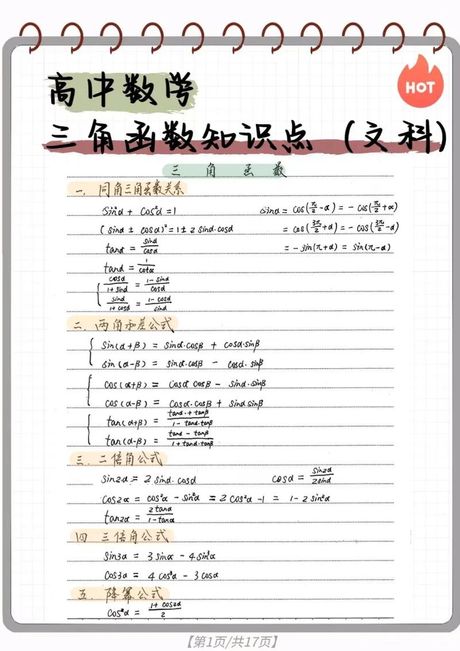 高中数学
HOT
三角函数知识点（文科）
三 角 函 数
一. 同角三角函数关系
sin²α + cos²α = 1    sinα = cos(π/2 - α) = - cos(π/2 + α)
(sinα ± cosα)² = 1 ± 2 sinα·cosα    = cos(3π/2 + α) = - cos(3π/2 - α)
tanα = sinα/cosα    = - sin(π + α) = sin(π - α)
tanα = 1/cotα
cosα/(1 + sinα) = (1 - sinα)/cosα
sinα/(1 + cosα) = (1 - cosα)/sinα
二. 两角和差公式
sin(α+β) = sinα·cosβ + cosα·sinβ
sin(α-β) = sinα·cosβ - cosα·sinβ
cos(α+β) = cosα·cosβ - sinα·sinβ
cos(α-β) = cosα·cosβ + sinα·sinβ
tan(α+β) = (tanα + tanβ)/(1 - tanα·tanβ)
tan(α-β) = (tanα - tanβ)/(1 + tanα·tanβ)
三. 二倍角公式
sin2α = 2 sinα·cosα    cosα = sin2α/2sinα
cos2α = cos²α - sin²α = 2 cos²α - 1 = 1 - 2 sin²α
tan2α =
四 三倍角公式
sin3α = 3 sinα - 4 sin³α
cos3α = 4 cos³α - 3 cosα
五. 降幂公式
cos²α = (1 + cos2α)/2
【第1页/共17页】